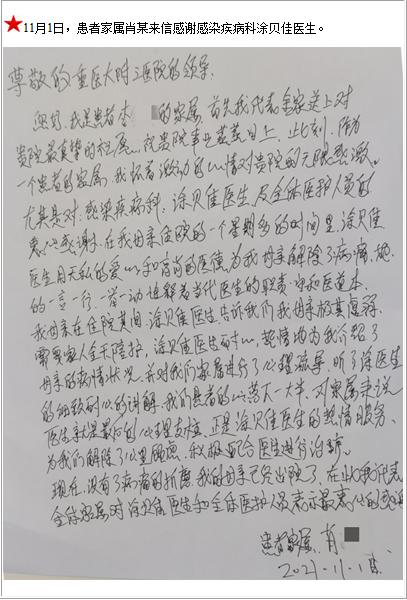 11月1日，患者家属肖某来信感谢感染疾病科涂贝佳医生。
尊敬的重医大附三医院的领导：
您好，我是患者李 的家属，首先我代表全家送上对
贵院最真挚的祝愿，祝贵院事业蒸蒸日上，此刻，作为
一个患者的家属，我怀着激动的心情对贵院的无限感激。
尤其是对：感染疾病科，涂贝佳医生及全体医护人员的
衷心感谢。在我母亲住院的一个星期多的时间里，涂贝佳
医生用无私的爱心和高尚的医德，为我母亲解除了病痛，她
的一言一行，一举一动诠释着当代医生的职责，守和医道本
我母亲在住院其间，涂贝佳医生告诉我们我母亲极其虚弱，
需要家人全天陪护，涂贝佳医生耐心，热情地为我介绍了
母亲的病情状况，并对我们家属进行了心理疏导，听了涂医生
的细致耐心的讲解，我们患者的心落下一大半，对家属来说
医生就是最好的心理支柱，正是涂贝佳医生的热情服务、
为我们解除了心里顾虑，积极配合医生进行治疗。
现在，没有了病痛的折磨，我的母亲已经出院了，在此我代表
全体家属对涂贝佳医生和全体医护人员表示最衷心的感谢
患者家属：肖
2021.11.1